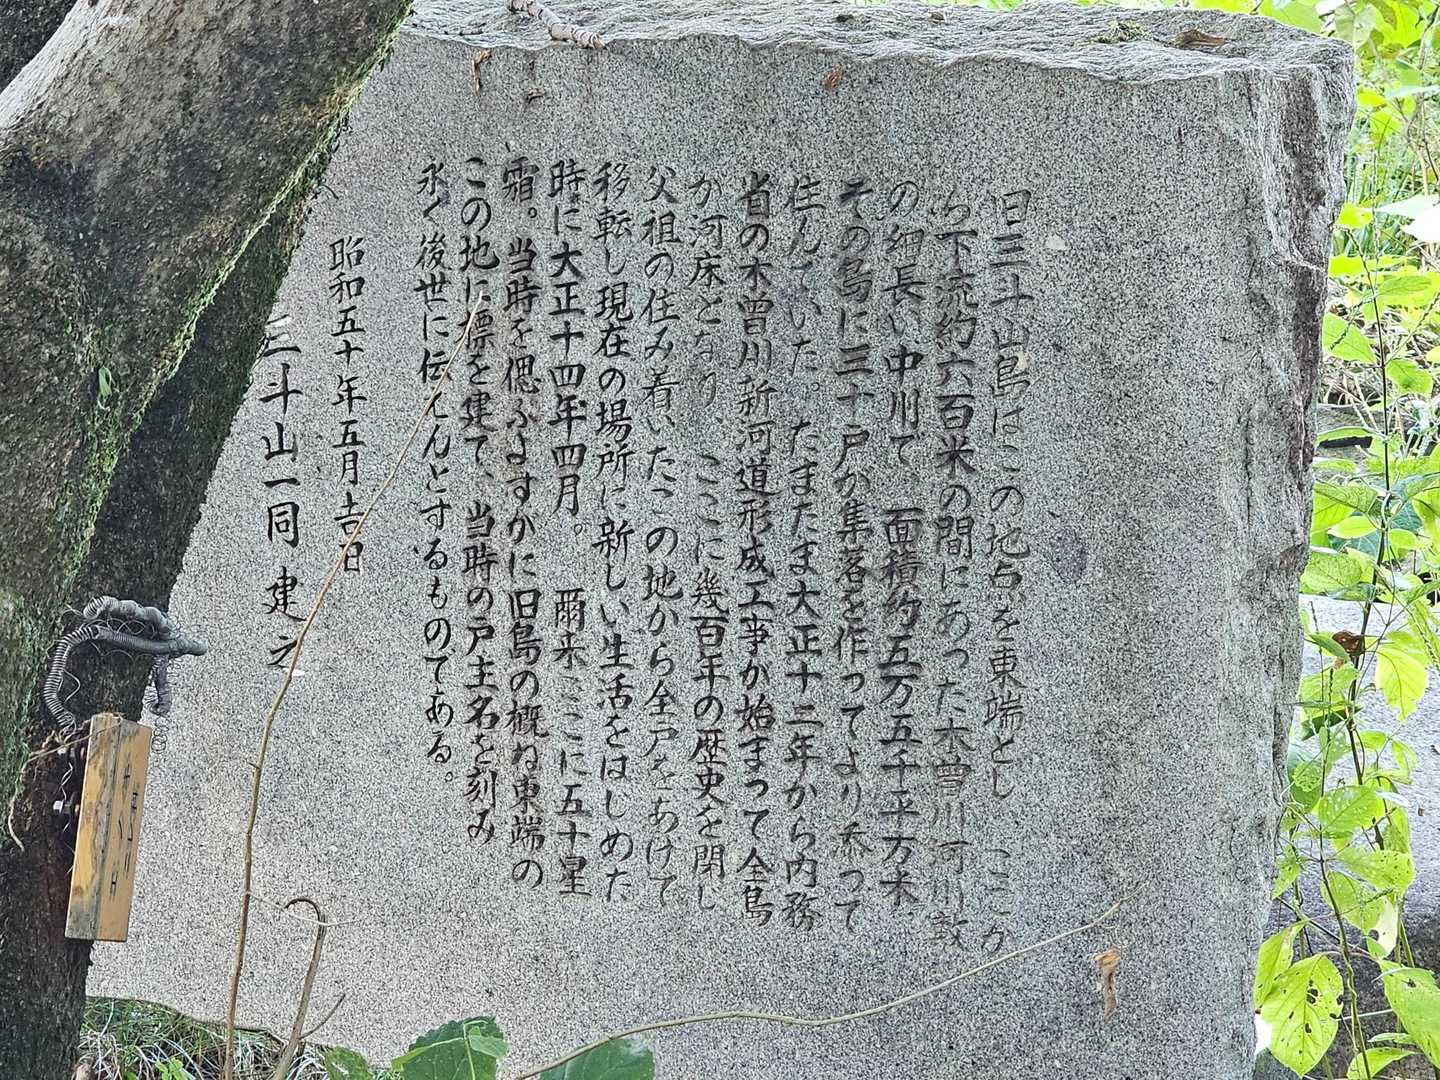 旧三斗山島はこの地点を東端とし ここか
ら下流約六百米の間にあった木曽川河川敷
の細長い中川で、面積約五万五千平方米
その島に三十戸が集落を作ってより添って
住んでいた。たまたま大正十三年から内務
省の木曽川新河道形成工事が始まって全島
が河床となり、ここに幾百年の歴史を閉し
父祖の住み着いたこの地から全戸をあげて
移転し現在の場所に新しい生活をはじめた
時に大正十四年四月。爾来ここに五十星
霜。当時を偲ぶよすがに旧島の概ね東端の
この地に標を建て、当時の戸主名を刻み
永く後世に伝えんとするものである。
昭和五十年五月吉日
三斗山一同建之